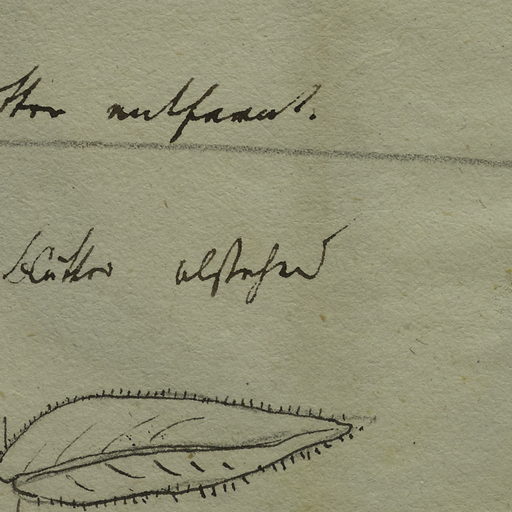 entfernt.
blätter abstehend